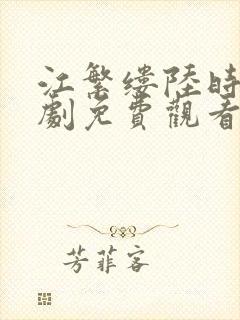 江繁缕陸時
劇免費觀看
芳菲客